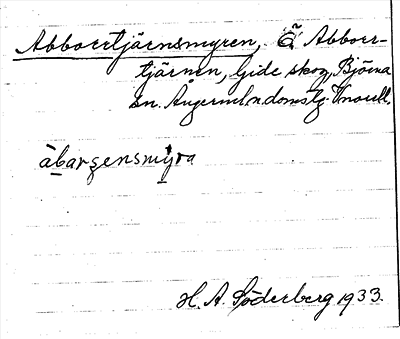 Abborrtjärnsmyren, Ö Abborr-
tjärnen, Gide skog, Björna
sn. Ångerml.n.domsg.
àbarʂensmyra
H. A. Söderberg 1933.